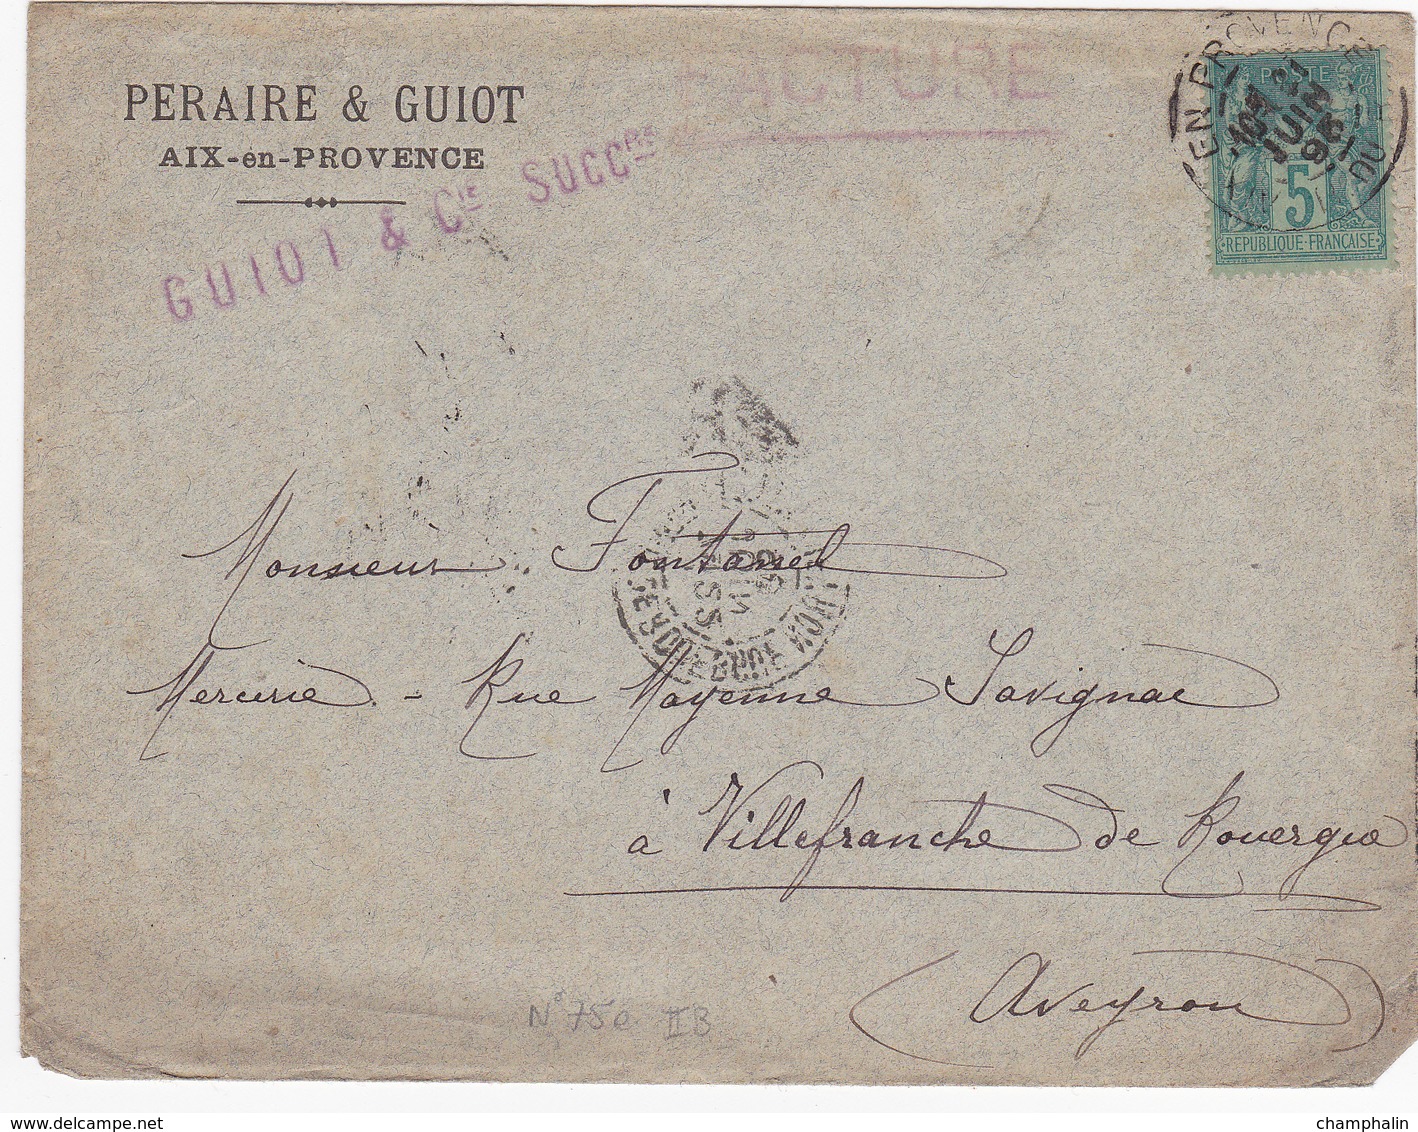 PERAIRE & GUIOT
AIX-en-PROVENCE
GUIOT & Cie SUCCrs
FACTURE
EN PROVENCE
POSTE
JUIN
5
REPUBLIQUE FRANÇAISE
Monsieur Fontanel
Mercerie - Rue Moyenne Savignac
à Villefranche de Rouergue
(Aveyron)
N° 75e IIB
www.delcampe.net
champhalin